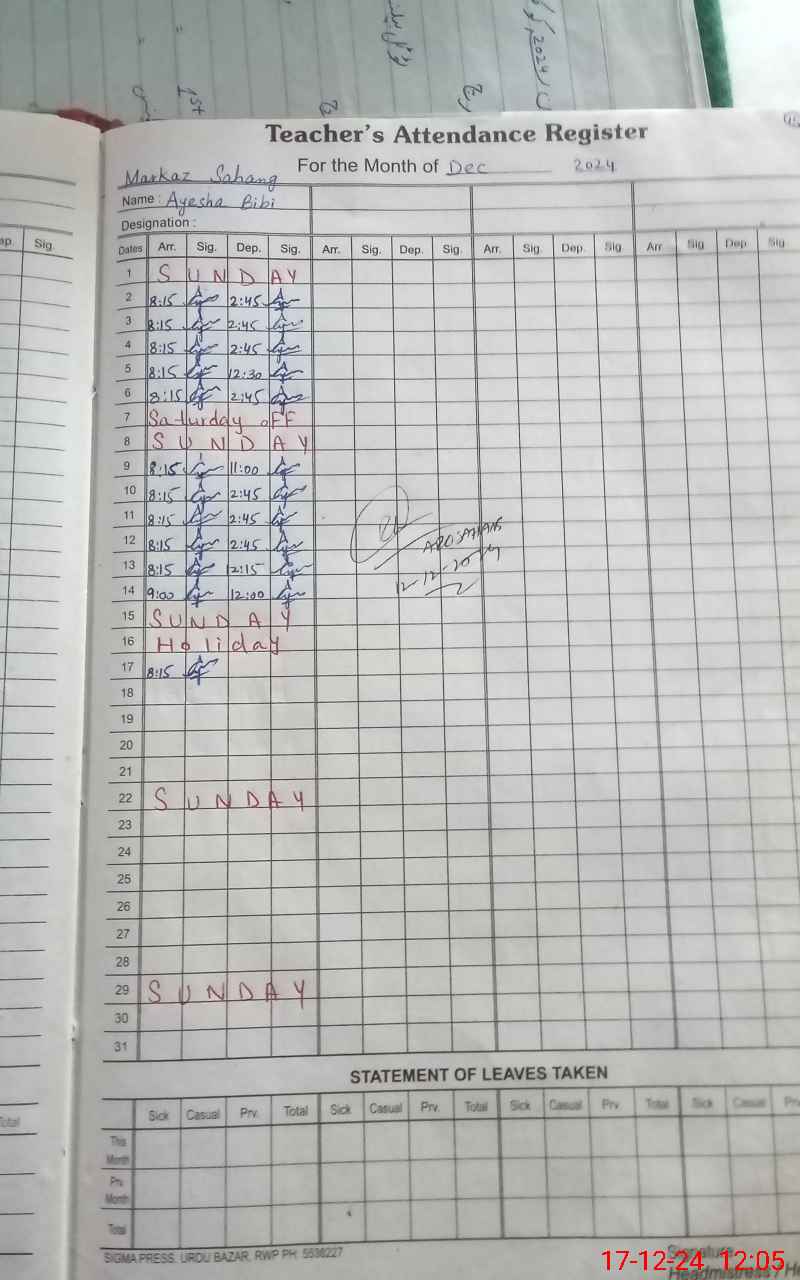 1st
Teacher's Attendance Register
For the Month of Dec 2024
Markaz Sahang
Name : Ayesha Bibi
Designation :
Sig.
Dates Arr. Sig. Dep. Sig. Arr. Sig. Dep. Sig. Arr. Sig. Dep. Sig Arr Sig Dep Sig
1 SUNDAY
2 8:15 2:45
3 8:15 2:45
4 8:15 2:45
5 8:15 12:30
6 8:15 2:45
7 Saturday oFF
8 SUNDAY
9 8:15 11:00
10 8:15 2:45
11 8:15 2:45
12 8:15 2:45
13 8:15 12:15
14 9:00 12:00
15 SUNDAY
16 Holiday
17 8:15
18
19
20
21
22 SUNDAY
23
24
25
26
27
28
29 SUNDAY
30
31
STATEMENT OF LEAVES TAKEN
Sick Casual Prv. Total Sick Casual Prv. Total Sick Casual Prv. Total Sick Casual
This Month
Prv. Month
Total
SIGMA PRESS, URDU BAZAR, RWP PH: 5536227
Signature
Headmistress /
17-12-24 12:05